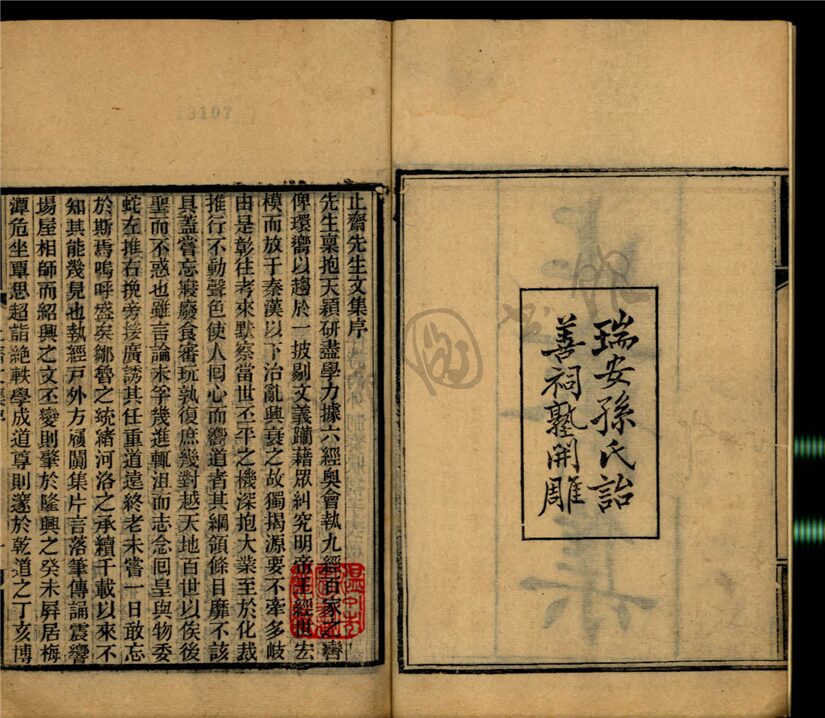 瑞安孫氏詒
善祠塾開雕
止齋先生文集序
先生稟抱天穎研盡學力據六經奧會執九經百家之轡
俾環嚮以趨於一披剔文義躪藉眾糾究明帝王經世宏
模而放于秦漢以下治亂興衰之故獨揭源要不牽多岐
由是彰往考來默察當世丕平之機深抱大業至於化裁
推行不動聲色使人回心而嚮道者其綱領條目靡不該
具蓋嘗忘寢廢食審玩熟復庶幾對越天地百世以俟後
聖而不惑也雖言論未孚幾進輒沮而志念回皇與物委
蛇左推右挽旁接廣誘其任重道遠終老未嘗一日敢忘
於斯焉嗚呼盛矣鄒魯之統緒河洛之承續千載以來不
知其能幾見也執經戶外方屨闐集片言落筆傳誦震響
場屋相師而紹興之文丕變則肇於隆興之癸未屏居梅
潭危坐覃思超詣絕軼學成道尊則邃於乾道之丁亥博
13107